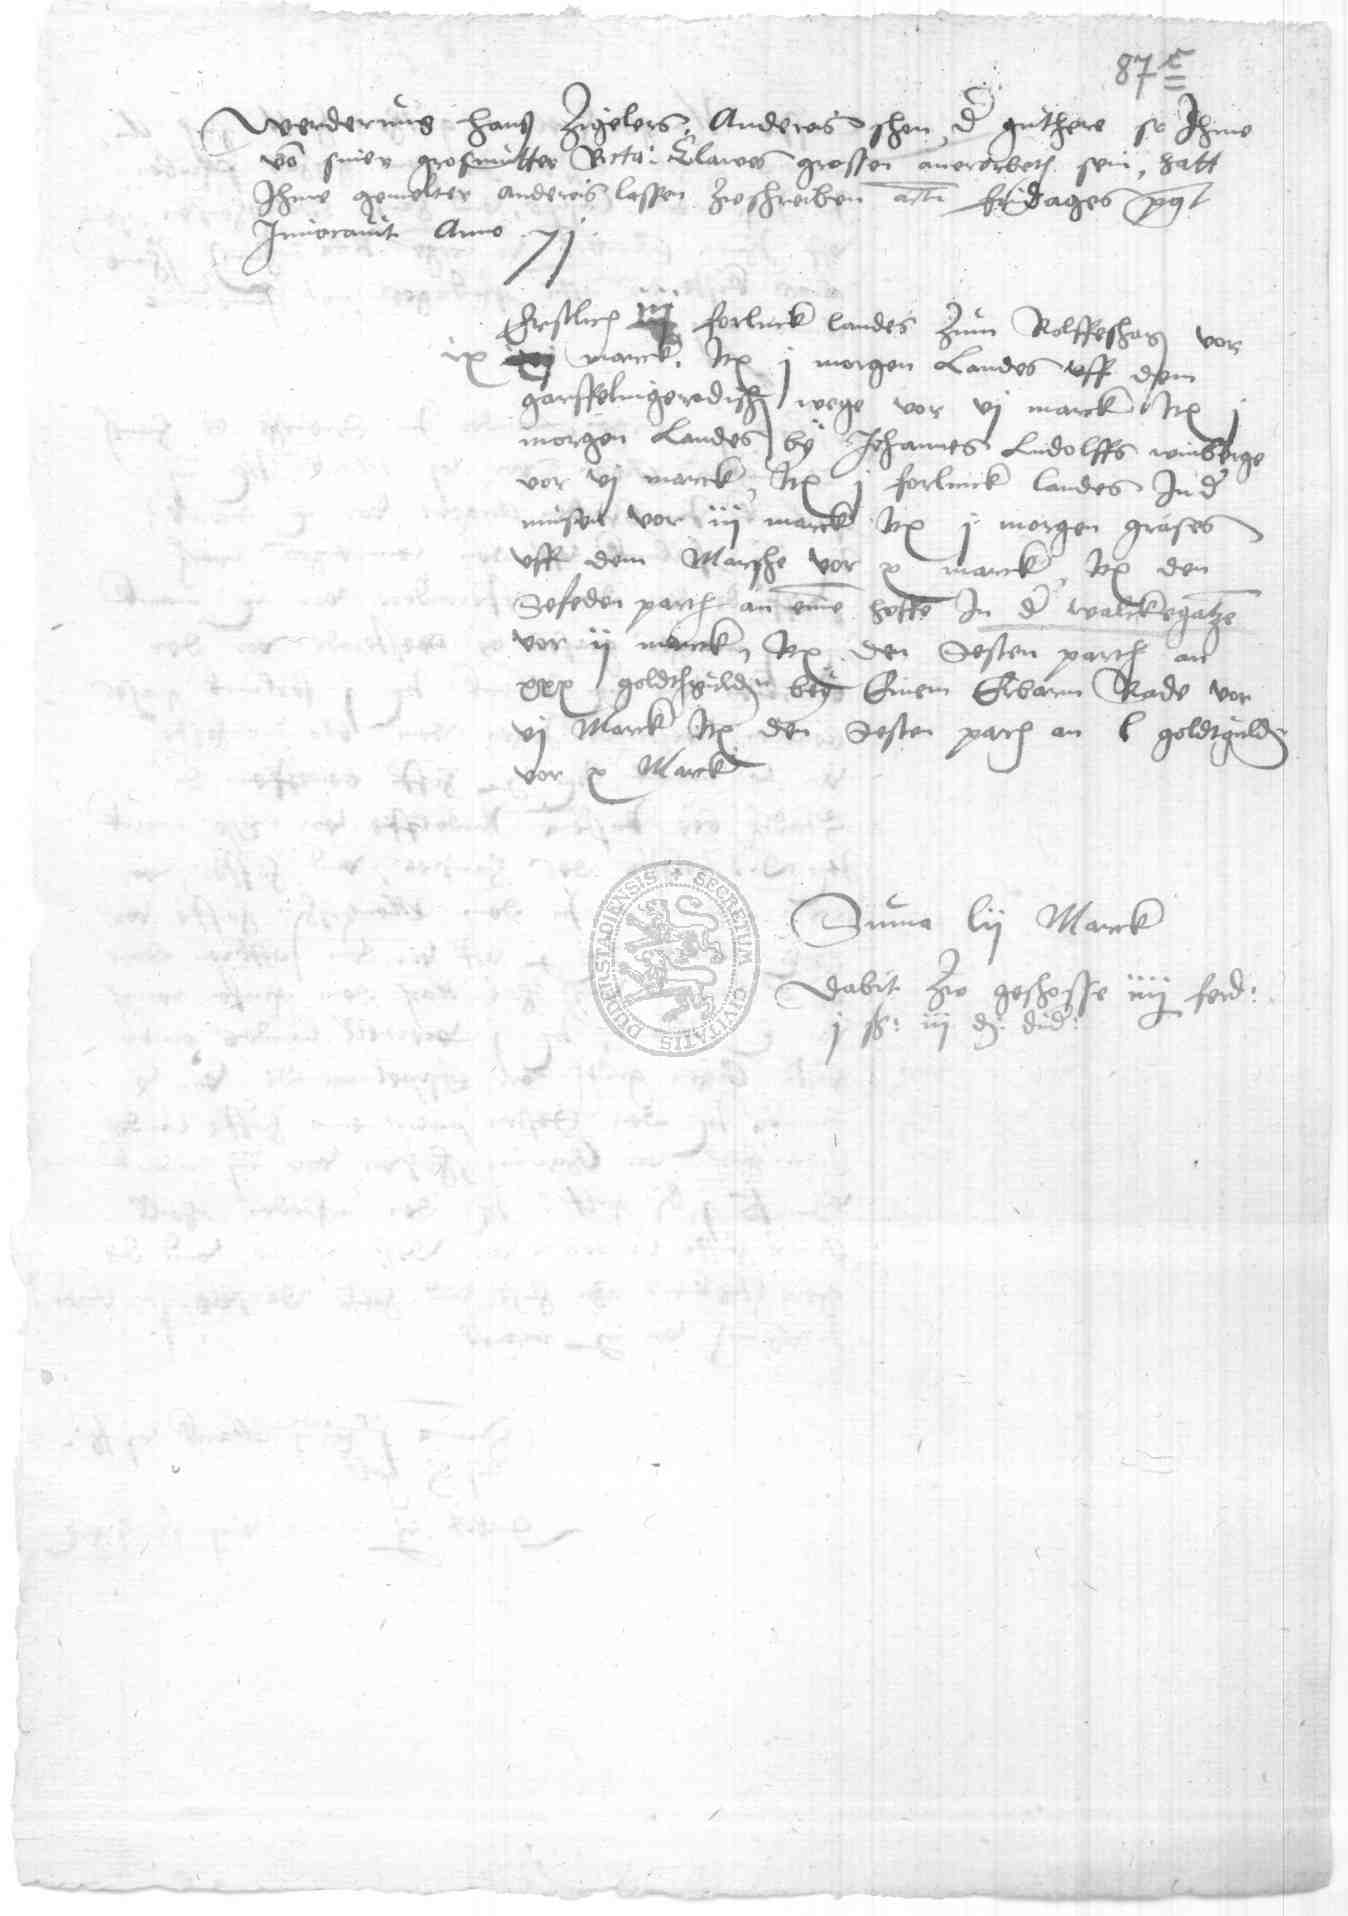 87 c
Werderung Hans Zigelers, Andereas shon, d' guthere so Ihme
vo siner grosmutter Clawes grossen anerorbeth sein, hatt
Ihme gemelter andereis lassen zwshreiben fridages post
Invocavit Anno xj
Erstlich iij forlinck landes zum Rolffeshag vor
ix marck. Itz j morgen Landes vff dem
garffelingerodish wege vor vj marck Itz j
morgen Landes by Johannes Ludolffs
vor vj marck, Itz j forlinck landes In d'
vor iij marck Itz j morgen grases
vff dem Marshe vor x marck, Itz den
Sefeden parth an eine hoffe In d' walckegatze
vor ij marck, Itz den Sesten parth an
xxx goldtgulden bey Einem Erbarm Rade vor
vj Marck Itz den Sesten parth an l goldtguld
vor x Marck
Suma lij Marck
dabit zw geshosse iiij ferd:
j ß: iij d: dud:
SECRETUM CIVITATIS DUDERSTADIENSIS